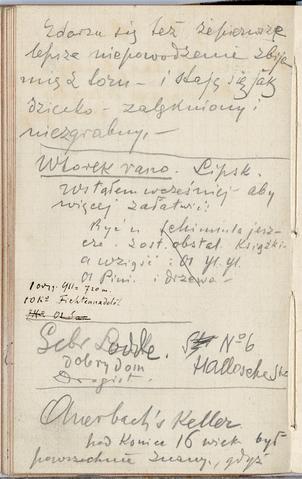 Zdarza się też że pierwsze
lepsze niepowodzenie zbija
mię z toru – i staję się jak
dziecko – zalękniony i
niezgrabny. –
Wtorek rano. Lipsk.
Wstałem wcześniej – aby
więcej załatwić:
Być u Schimmla jesz-
cze. Zost. obstal. Książki
a wziąść : Ol Yl. Yl.
Ol Pini. i drzewa –
10 Ko Fichtennadelöl
Gebr No 6
Dobry dom Hallosche Str
Drogist.
Auerbach's Keller
pod koniec 16 wiek był
powszechnie znany, gdyż